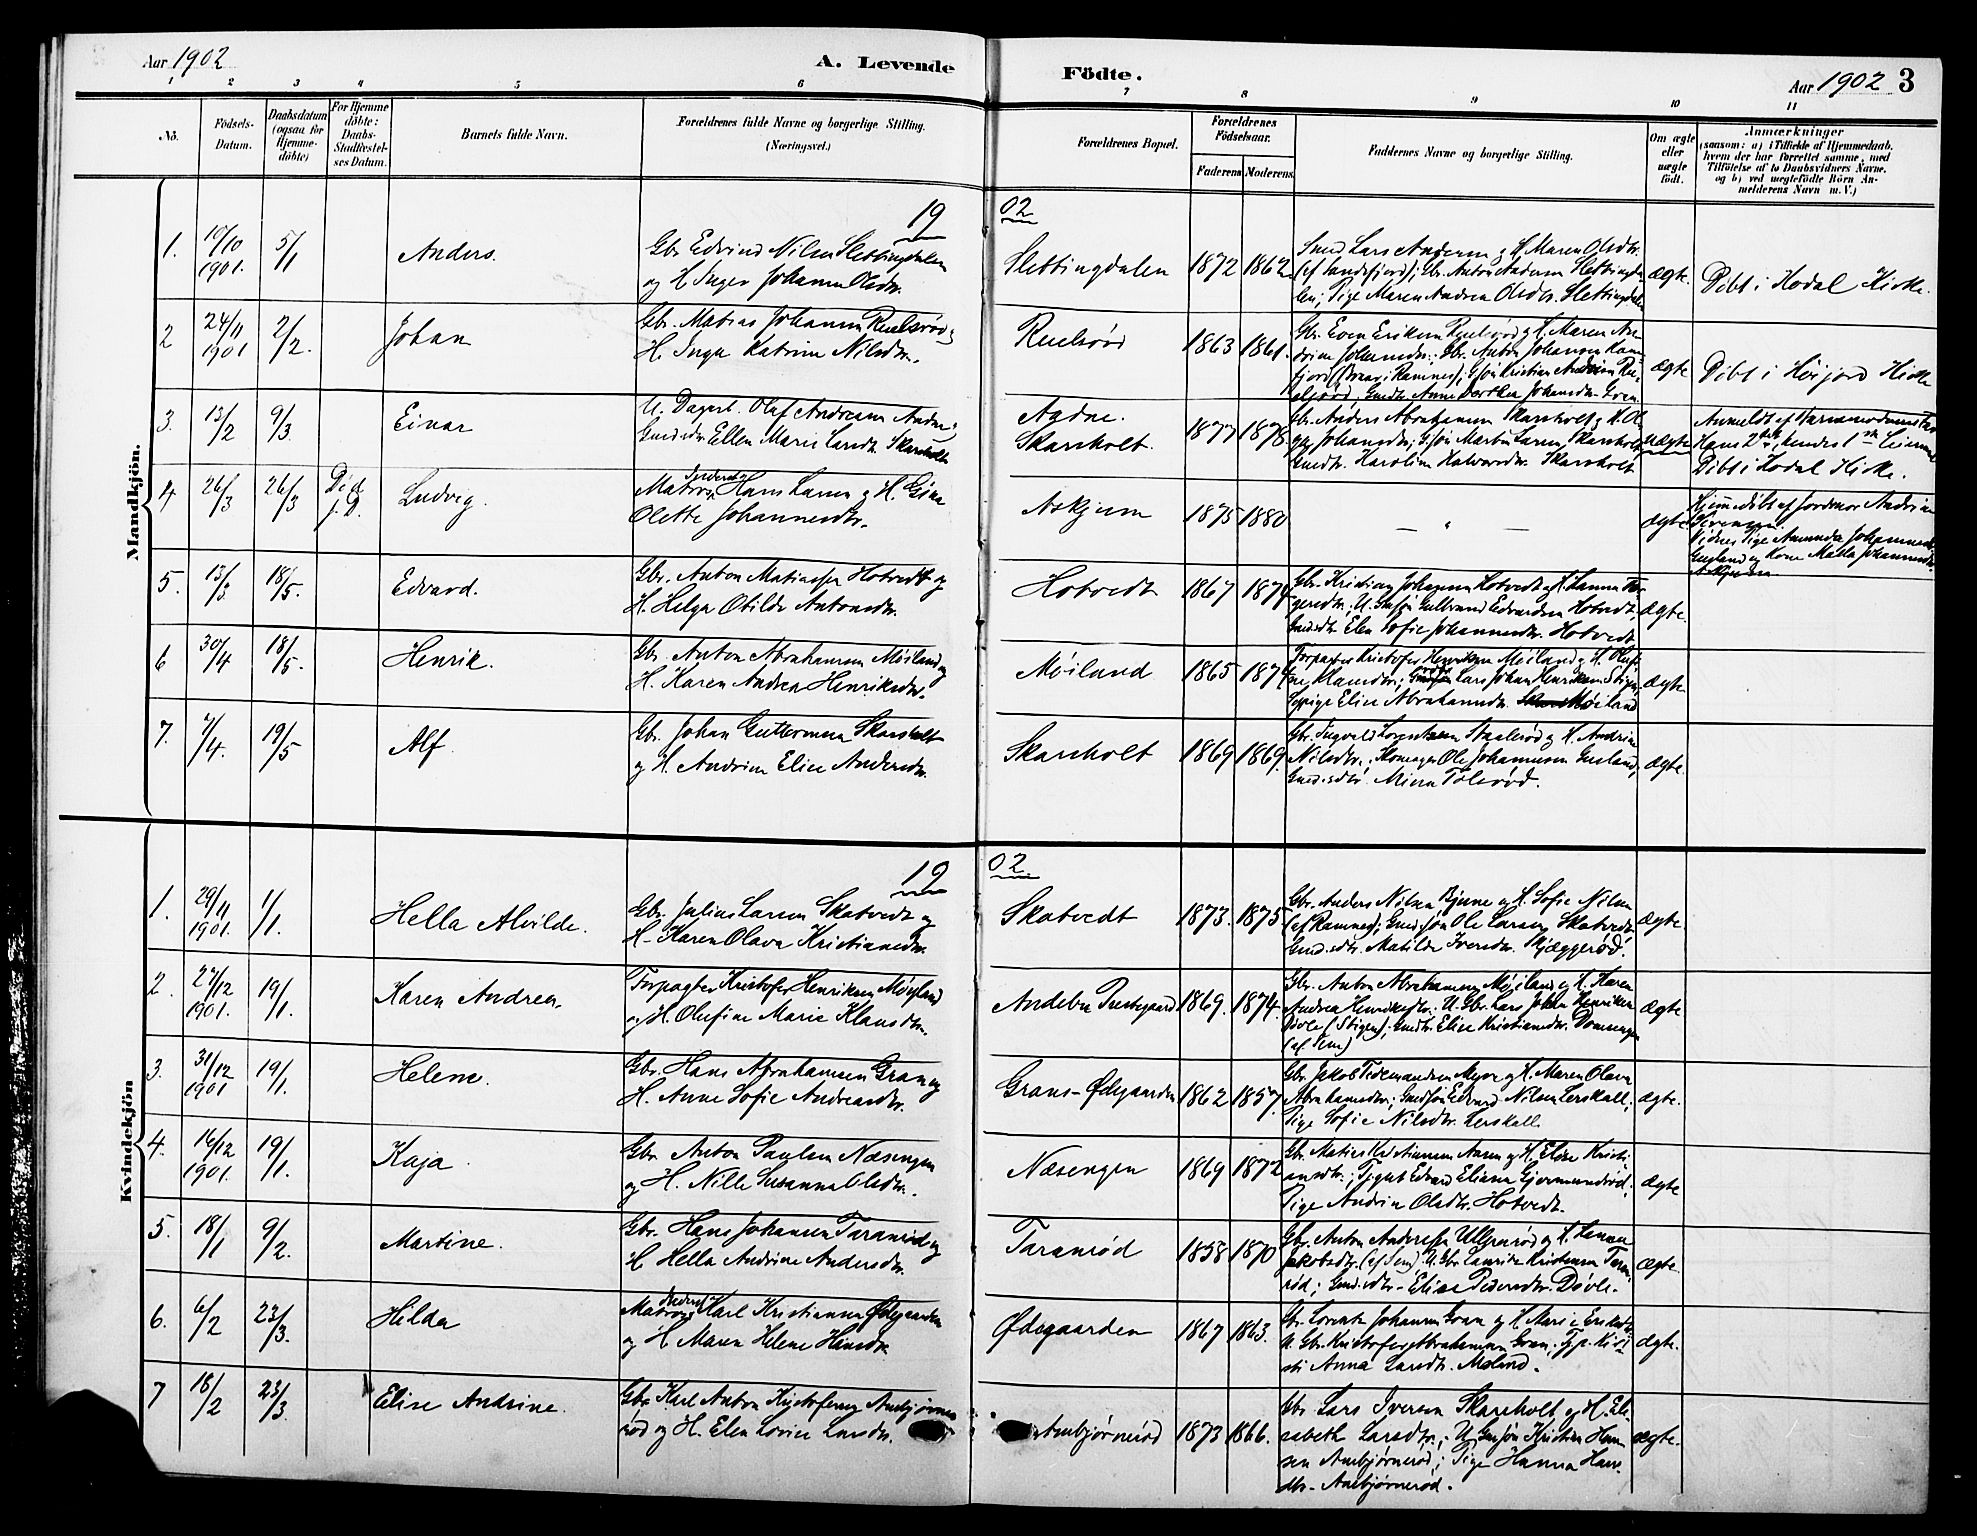 Aar 1902
A. Levende
Födte.
Aar 1902 3
1 2 3 4 5 6 7 8 9 10 11
Nó.
Födsels-
Datum.
Daabsdatum
(ogsaa for
Hjemme-
döbte)
For Hjemme
döbte:
Daabs-
Stadfæstel-
ses Datum.
Barnets fulde Navn.
Forældrenes fulde Navne og borgerlige Stilling.
(Næringsvei.)
Forældrenes Bopæl.
Forældrenes
Födselsaar.
Faderens Moderens
Faddernes Navne og borgerlige Stilling.
Om ægte
eller
uægte
født.
Anmærkninger
(saasom: a) i Tilfælde af Hjemmedaab,
hvem der har forrettet samme, med
Tilföielse af to Daabsvidners Navne.
og b) ved uægtefödte Börn An-
melderens Navn m. V.)
Mandkjön.
19 02
1. 10/10 1901. 5/1 Anders.
Gbr. Edvind Nilsen Slettingdalen
og H. Inger Johanne Olsdtr.
Slettingdalen 1872 1862
Smed Lars Andersen og H. Maren Olsdtr.
(af Sandefjord); Gbr. Anton Andersen Slettingda
len; Pige Maren Andrea Olsdtr. Slettingdalen
ægte.
Döbt i Hodal Kirke.
2 24/11 1901 2/2. Johan
Gbr. Matias Johansen Ruelsrød og
H. Inga Katrine Nilsdtr.
Ruelsrød 1863 1861.
Gbr. Even Eriksen Ruelsrød og H. Maren An
drine Johansdtr.; Gbr. Anton Johansen
ægte
Döbt i Høijord Kirke
3. 13/2 9/3. Einar
U. Dagarb. Olaf Andreasen
Gmdsdtr. Ellen Marie Larsdtr. Skarsholt
Skarsholt. 1877 1878
Gbr. Anders Abrahamsen Skarsholt og H.
Johansdtr.; Gsøn Martin Larsen Skarsholt
Gmdtr. Karoline Halvorsdtr. Skarsholt
uægte
Hans 2det, hendes 1ste Leiermaal
Döbt i Hodal Kirke.
4 26/3 26/3 Død
Ludvig.
Matros Hans Larsen og H. Gina
Olette Johannesdtr.
Askjum 1875 1880
— " —
ægte
Hjemmedöbt af Jordmor Andrine
Sørensen.
Vidner Pige Amunda Johannesdtr.
Gusland og Kone Johannesdtr.
Askjum
5. 13/3 18/5. Edvard.
Gbr. Anton Matiassen Hotvedt og
H. Helga Otilde Antonsdtr.
Hotvedt 1867 1874
Gbr. Kristian Johansen Hotvedt og H.
U. Gmsøn Gulbrand Edvardsen Hotvedt;
Gmdsdtr. Elen Sofie Johannesdtr. Hotvedt
ægte.
6 30/4 18/5. Henrik.
Gbr. Anton Abrahamsen Møiland og
H. Karen Andrea Henriksdtr.
Møiland 1865 1874
Forpagter Kristofer Henriksen Møiland og H. Olufi
ne Klausdtr.; Lars Johan Henriksen Stigen,
Pige Elise Abrahamsdtr. Møiland
ægte.
7. 7/4. 19/5 Alf.
Gbr. Johan Guttormsen Skarsholt
og H. Andrine Elise Andersdtr.
Skarsholt 1869 1869.
Gbr. Ingvald Lorentsen Staalerød og H. Andrine
Nilsdtr.; Skomager Ole Johannesen Gusland;
Gmdsdtr. Tolsrød.
ægte.
Kvindekjön
19 02
1. 29/11 1901. 1/1. Hella Alvilde.
Gbr. Julius Larsen Skatvedt og
H. Karen Olava Kristiansdtr.
Skatvedt 1873. 1875
Gbr. Anders Nilsen Bjune og H. Sofie Nilsen
(af Ramnes); Gmdsøn Ole Larsen Skatvedt
Gmdsdtr. Matilde Iversdtr. Skjæggerød.
ægte.
2. 27/12 1901. 19/1. Karen Andrea.
Forpagter Kristofer Henriksen Møyland
og H. Olufine Marie Klausdtr.
Andebu Prestegaard 1869. 1874.
Gbr. Anton Abrahamsen Møiland og H. Karen
Andrea Henriksdtr.; U. Gbr. Lars Johan Henriksen
Døvle (Stigen); Gmdtr. Elise Kristiansdtr.
(af Sem)
ægte.
3. 31/12 1901 19/1. Helene.
Gbr. Hans Abrahamsen Gran og
H. Anne Sofie Andreasdtr.
Grans-Ødegaarden 1862 1857.
Gbr. Jakob Tidemandsen Myre og H. Maren Olava
Abrahamsdtr.; Gmdsøn Edvard Nilsen Lerskall;
Pige Sofie Nilsdtr. Lerskall.
ægte.
4. 16/12 1901. 19/1. Kaja.
Gbr. Anton Paulsen Næsengen
og H. Nille Susanna Olsdtr.
Næsengen 1869 1872
Gbr. Matias Kristiansen Aasen og H. Elise Kristi-
ansdtr.; Tjgut Edvard Eliasen Gjermundrød;
Pige Andrine Olsdtr. Hotvedt.
ægte
5. 18/1 9/2. Martine.
Gbr. Hans Johansen Taranrød og
H. Hella Andrine Andersdtr.
Taranrød 1858 1870
Gbr. Anton Anderssen Ullensrød og H. Lenae
Jakobsdtr. (af Sem). U. Gbr. Lauritz Kristensen Taran
rød; Gmdsdtr. Elise Pedersdtr. Døvle.
ægte.
6. 6/2 23/3. Hilda
Matros Karl Kristiansen Ødegaarden
og H. Maren Helene Hansdtr.
Ødegaarden 1867 1863.
Gbr. Lorentz Johansen Gran og H. Marie Eriksdtr.
U. Gbr. Kristofer Abrahamsen Gran; Tjp.
Anna Larsdtr.
ægte.
7 18/2 23/3. Elise Andrine.
Gbr. Karl Anton Kristofersen Anebjørns
rød og H. Elen Lovise Larsdtr.
Anebjørnerød 1873 1866.
Gbr. Lars Iversen Skarsholt og H. Eli-
sabeth Larsdtr.; U. Gmsøn Kristian Han
sen Anebjørnerød; Pige Hanna Hans-
dtr. Anebjørnerød.
ægte.